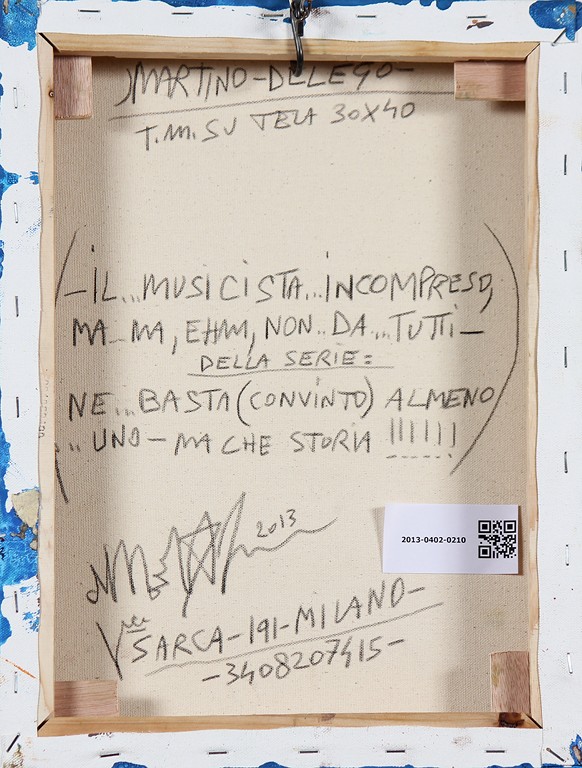 MARTINO-DELLEGO-
T.M. SU TELA 30X40
(-IL...MUSICISTA...INCOMPRESO,
MA_MA, EHM, NON..DA...TUTTI-
DELLA SERIE=
NE...BASTA (CONVINTO) ALMENO
...UNO-MA CHE STORIA !!!!!!)
2013
2013-0402-0210
SARCA-191-MILANO-
-3408207415-